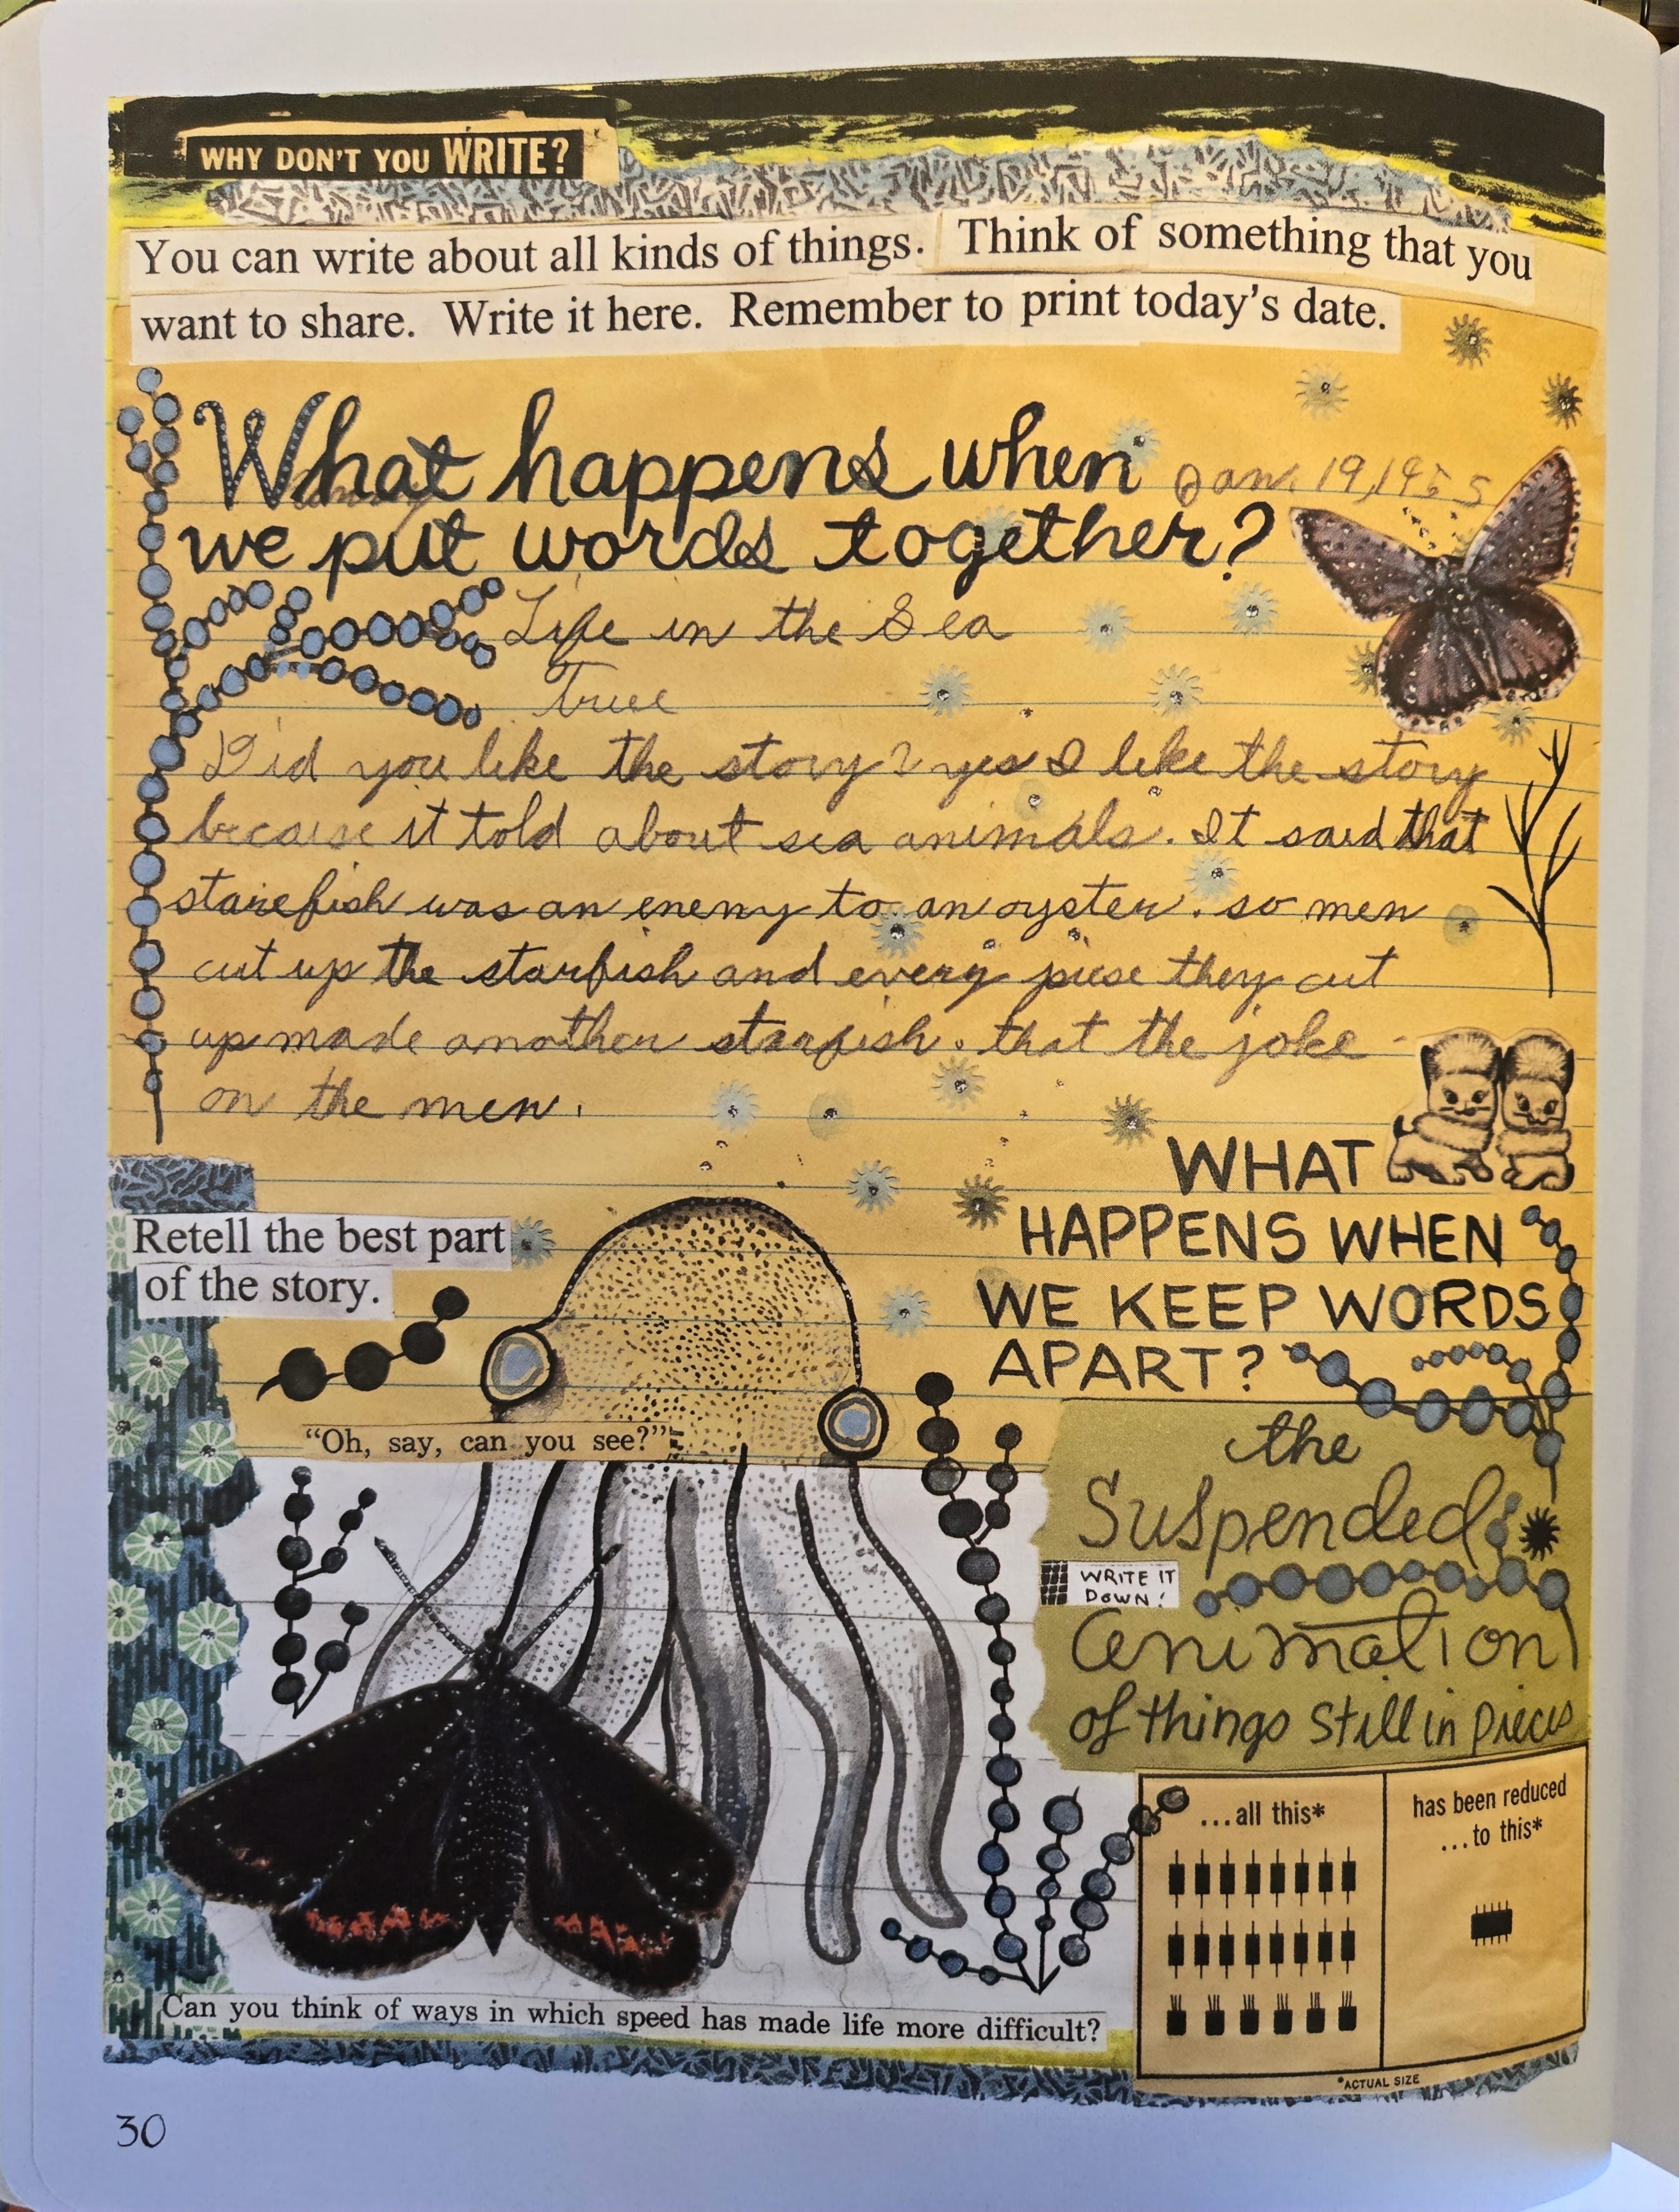 WHY DON'T YOU WRITE?
You can write about all kinds of things. Think of something that you
want to share. Write it here. Remember to print today's date.
What happens when
Jan. 19, 1955
we put words together?
Life in the Sea
True
Did you like the story? yes I like the story
because it told about sea animals. It said that
starefish was an enemy to an oyster. so men
cut up the starfish and every piese they cut
up made another starfish. that the joke
on the men.
WHAT
HAPPENS WHEN
WE KEEP WORDS
APART?
Retell the best part
of the story.
"Oh, say, can you see?"
the
Suspended
WRITE IT
DOWN!
animation
of things still in pieces
...all this*
has been reduced
...to this*
*ACTUAL SIZE
Can you think of ways in which speed has made life more difficult?
30